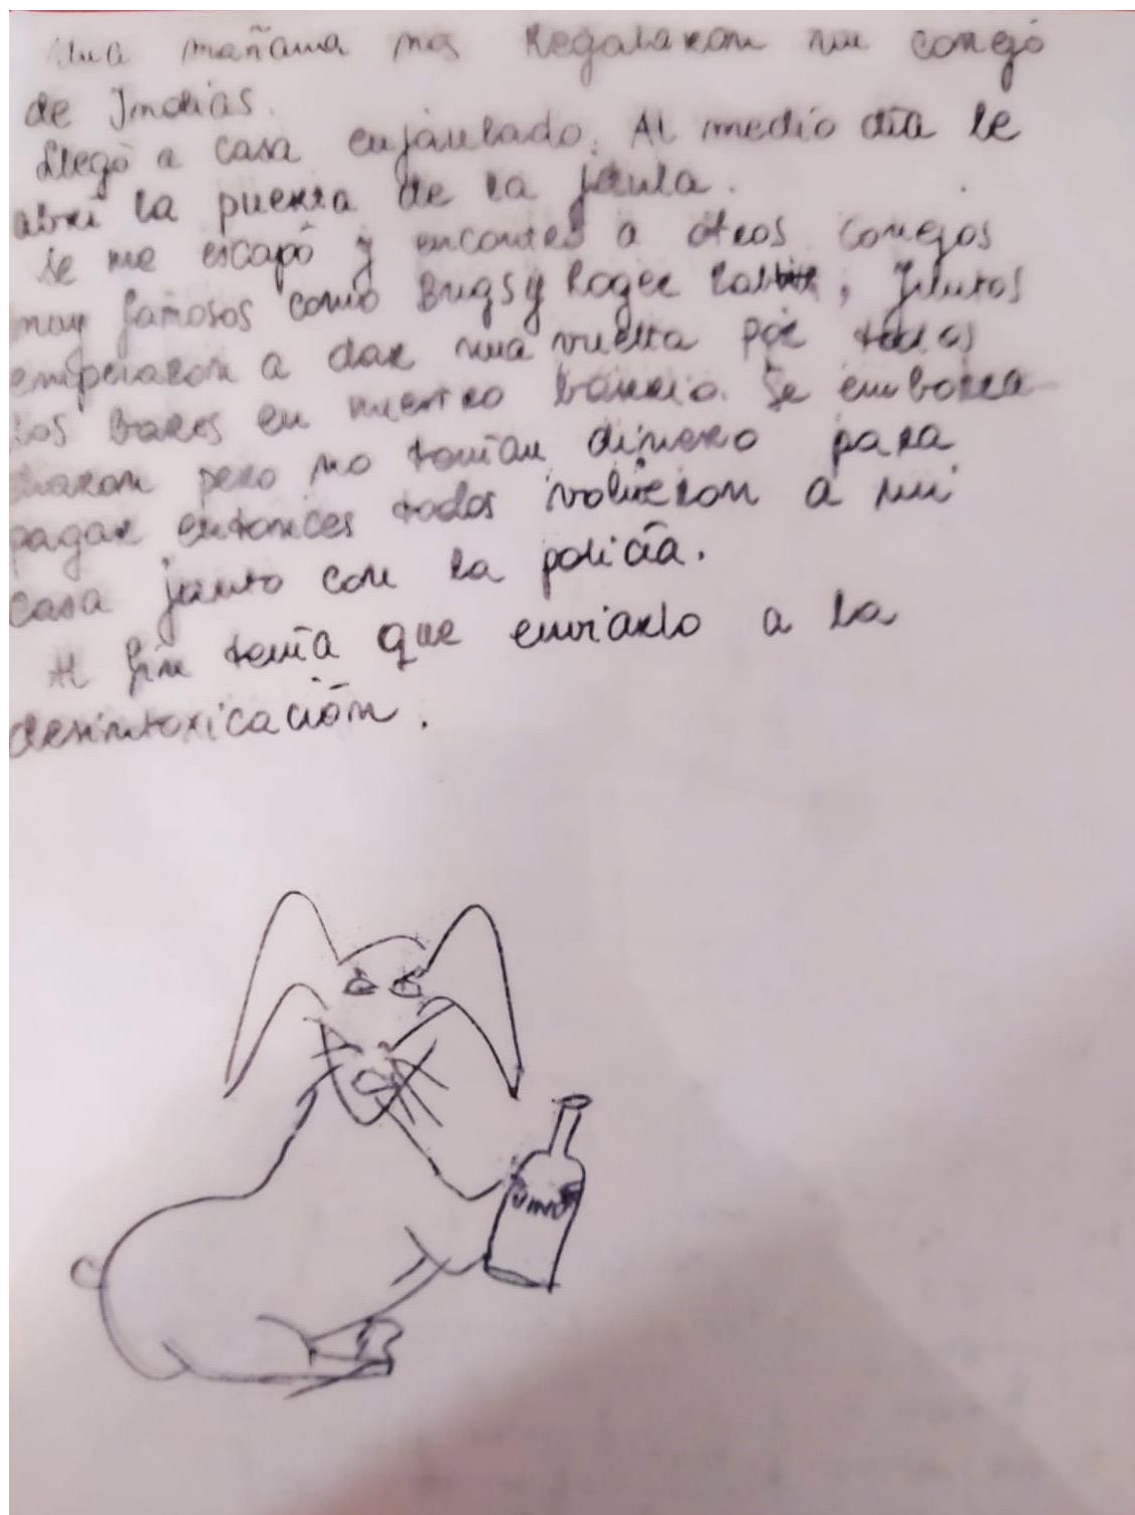 Una mañana nos Regalaron un conejo
de Indias.
Llegó a casa enjaulado. Al medio día le
abrí la puerta de la jaula.
Se me escapó y encontró a otros conejos
muy famosos como Bugs y Roger Rabbit, Juntos
empezaron a dar una vuelta por todos
los bares en nuestro barrio. Se emborra-
charon pero no tenían dinero para
pagar entonces todos volvieron a mi
casa junto con la policía.
Al fin tenía que enviarlo a la
desintoxicación.